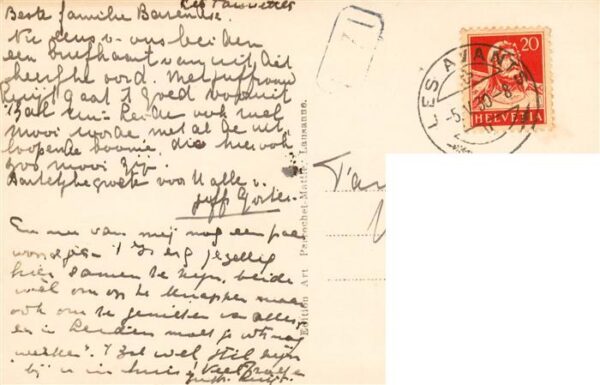 Beste familie Barendse.
Nu eens v. ons beiden
een briefkaart van uit dit
heerlijke oord. Met juffrouw
gaat 't goed vooruit
't Zal in Leiden ook wel
mooi worden, met al de uit-
loopende boomen, die hier ook
zoo mooi zijn.
Hartelijk gegroet voor U alle v.
juff
En nu van mij nog een paar
woordjes! 't Is erg gezellig
hier samen te zijn, beide
wel om op te knappen maar
ook om te genieten van alles,
en in Leiden moet je
werken. 't Zal wel stil zijn
bij u in huis!
Edition Art. Perrochet-Matile, Lausanne.
LES AVANTS
-5.V.30-8
20
HELVETIA